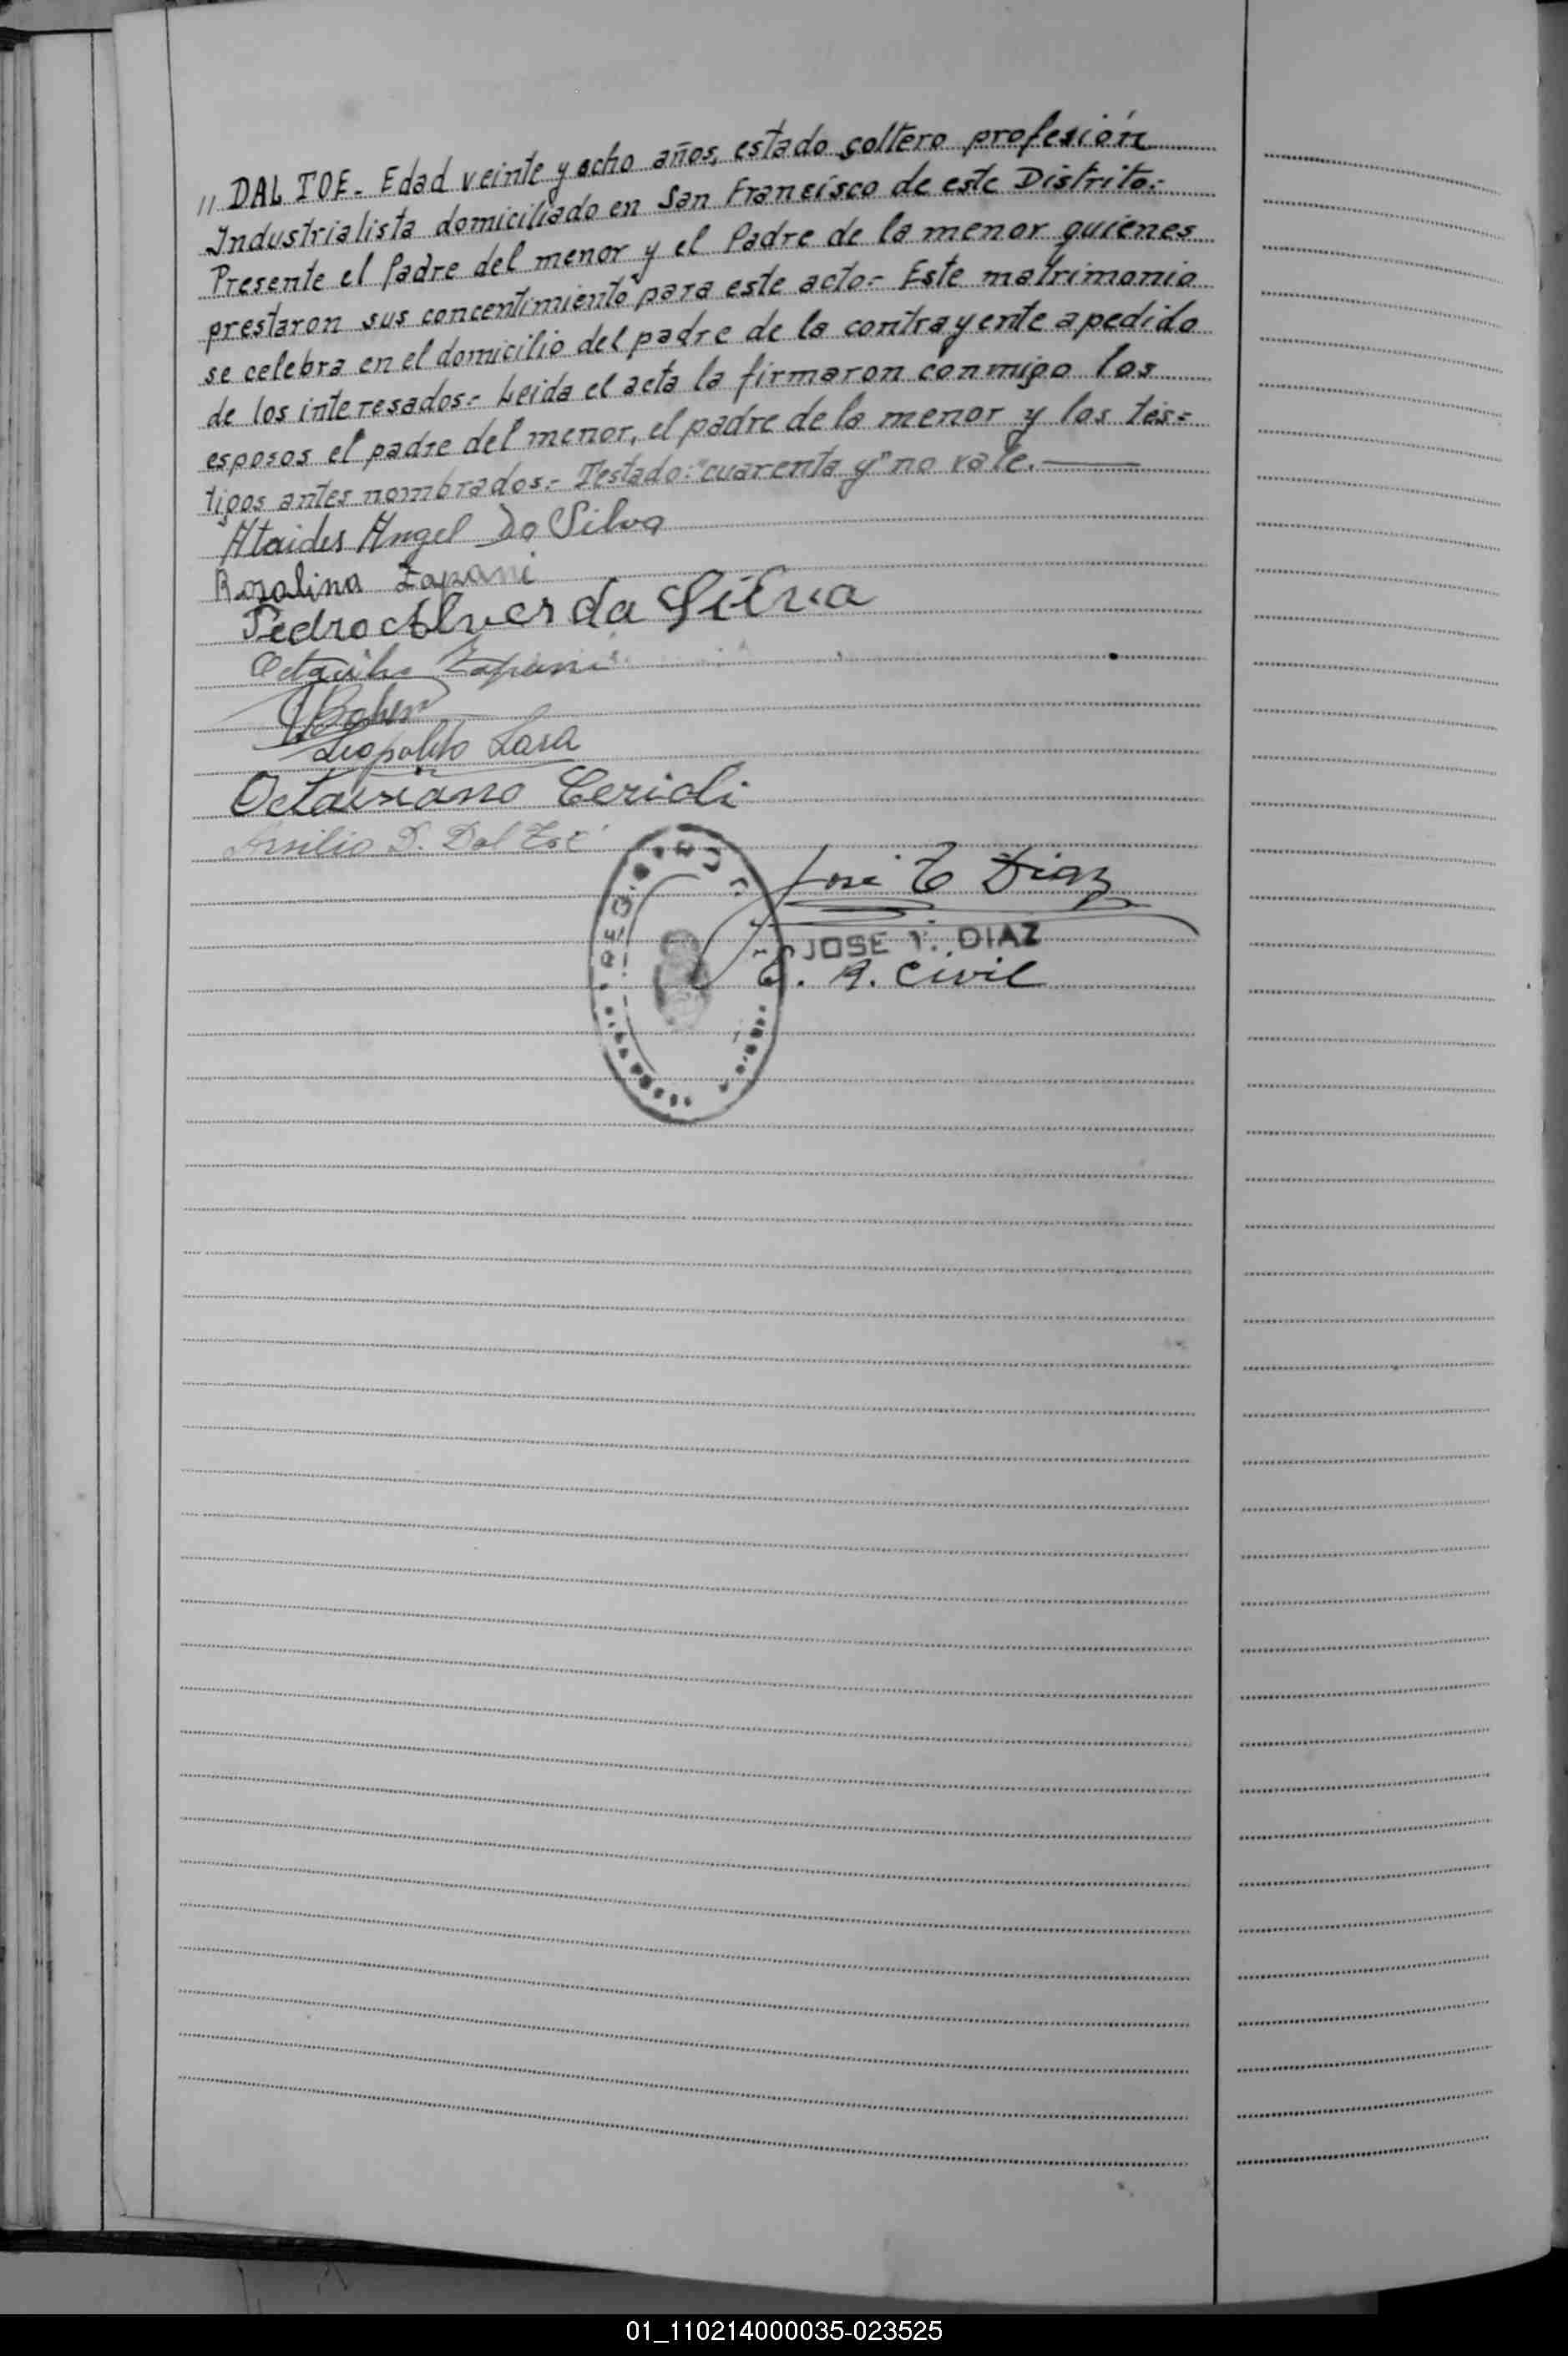 " DAL TOE.- Edad veinte y ocho años, estado soltero profesión
Industrialista domiciliado en San Francisco de este Distrito.-
Presente el Padre del menor y el Padre de la menor quienes
prestaron sus concentimiento para este acto.- Este matrimonio
se celebra en el domicilio del padre de la contrayente a pedido
de los interesados.- Leida el acta la firmaron conmigo los
esposos el padre del menor, el padre de la menor y los tes=
tigos antes nombrados.- Testado: "cuarenta y" no vale.
Ataides Angel Da Silva
Rosalina Zapani
Pedro Alves da Silva
Zapani
Leopoldo Lara
Octaviano Cerioli
D. Dal Toé
José T Diaz
JOSE T. DIAZ
R. Civil
01_110214000035-023525